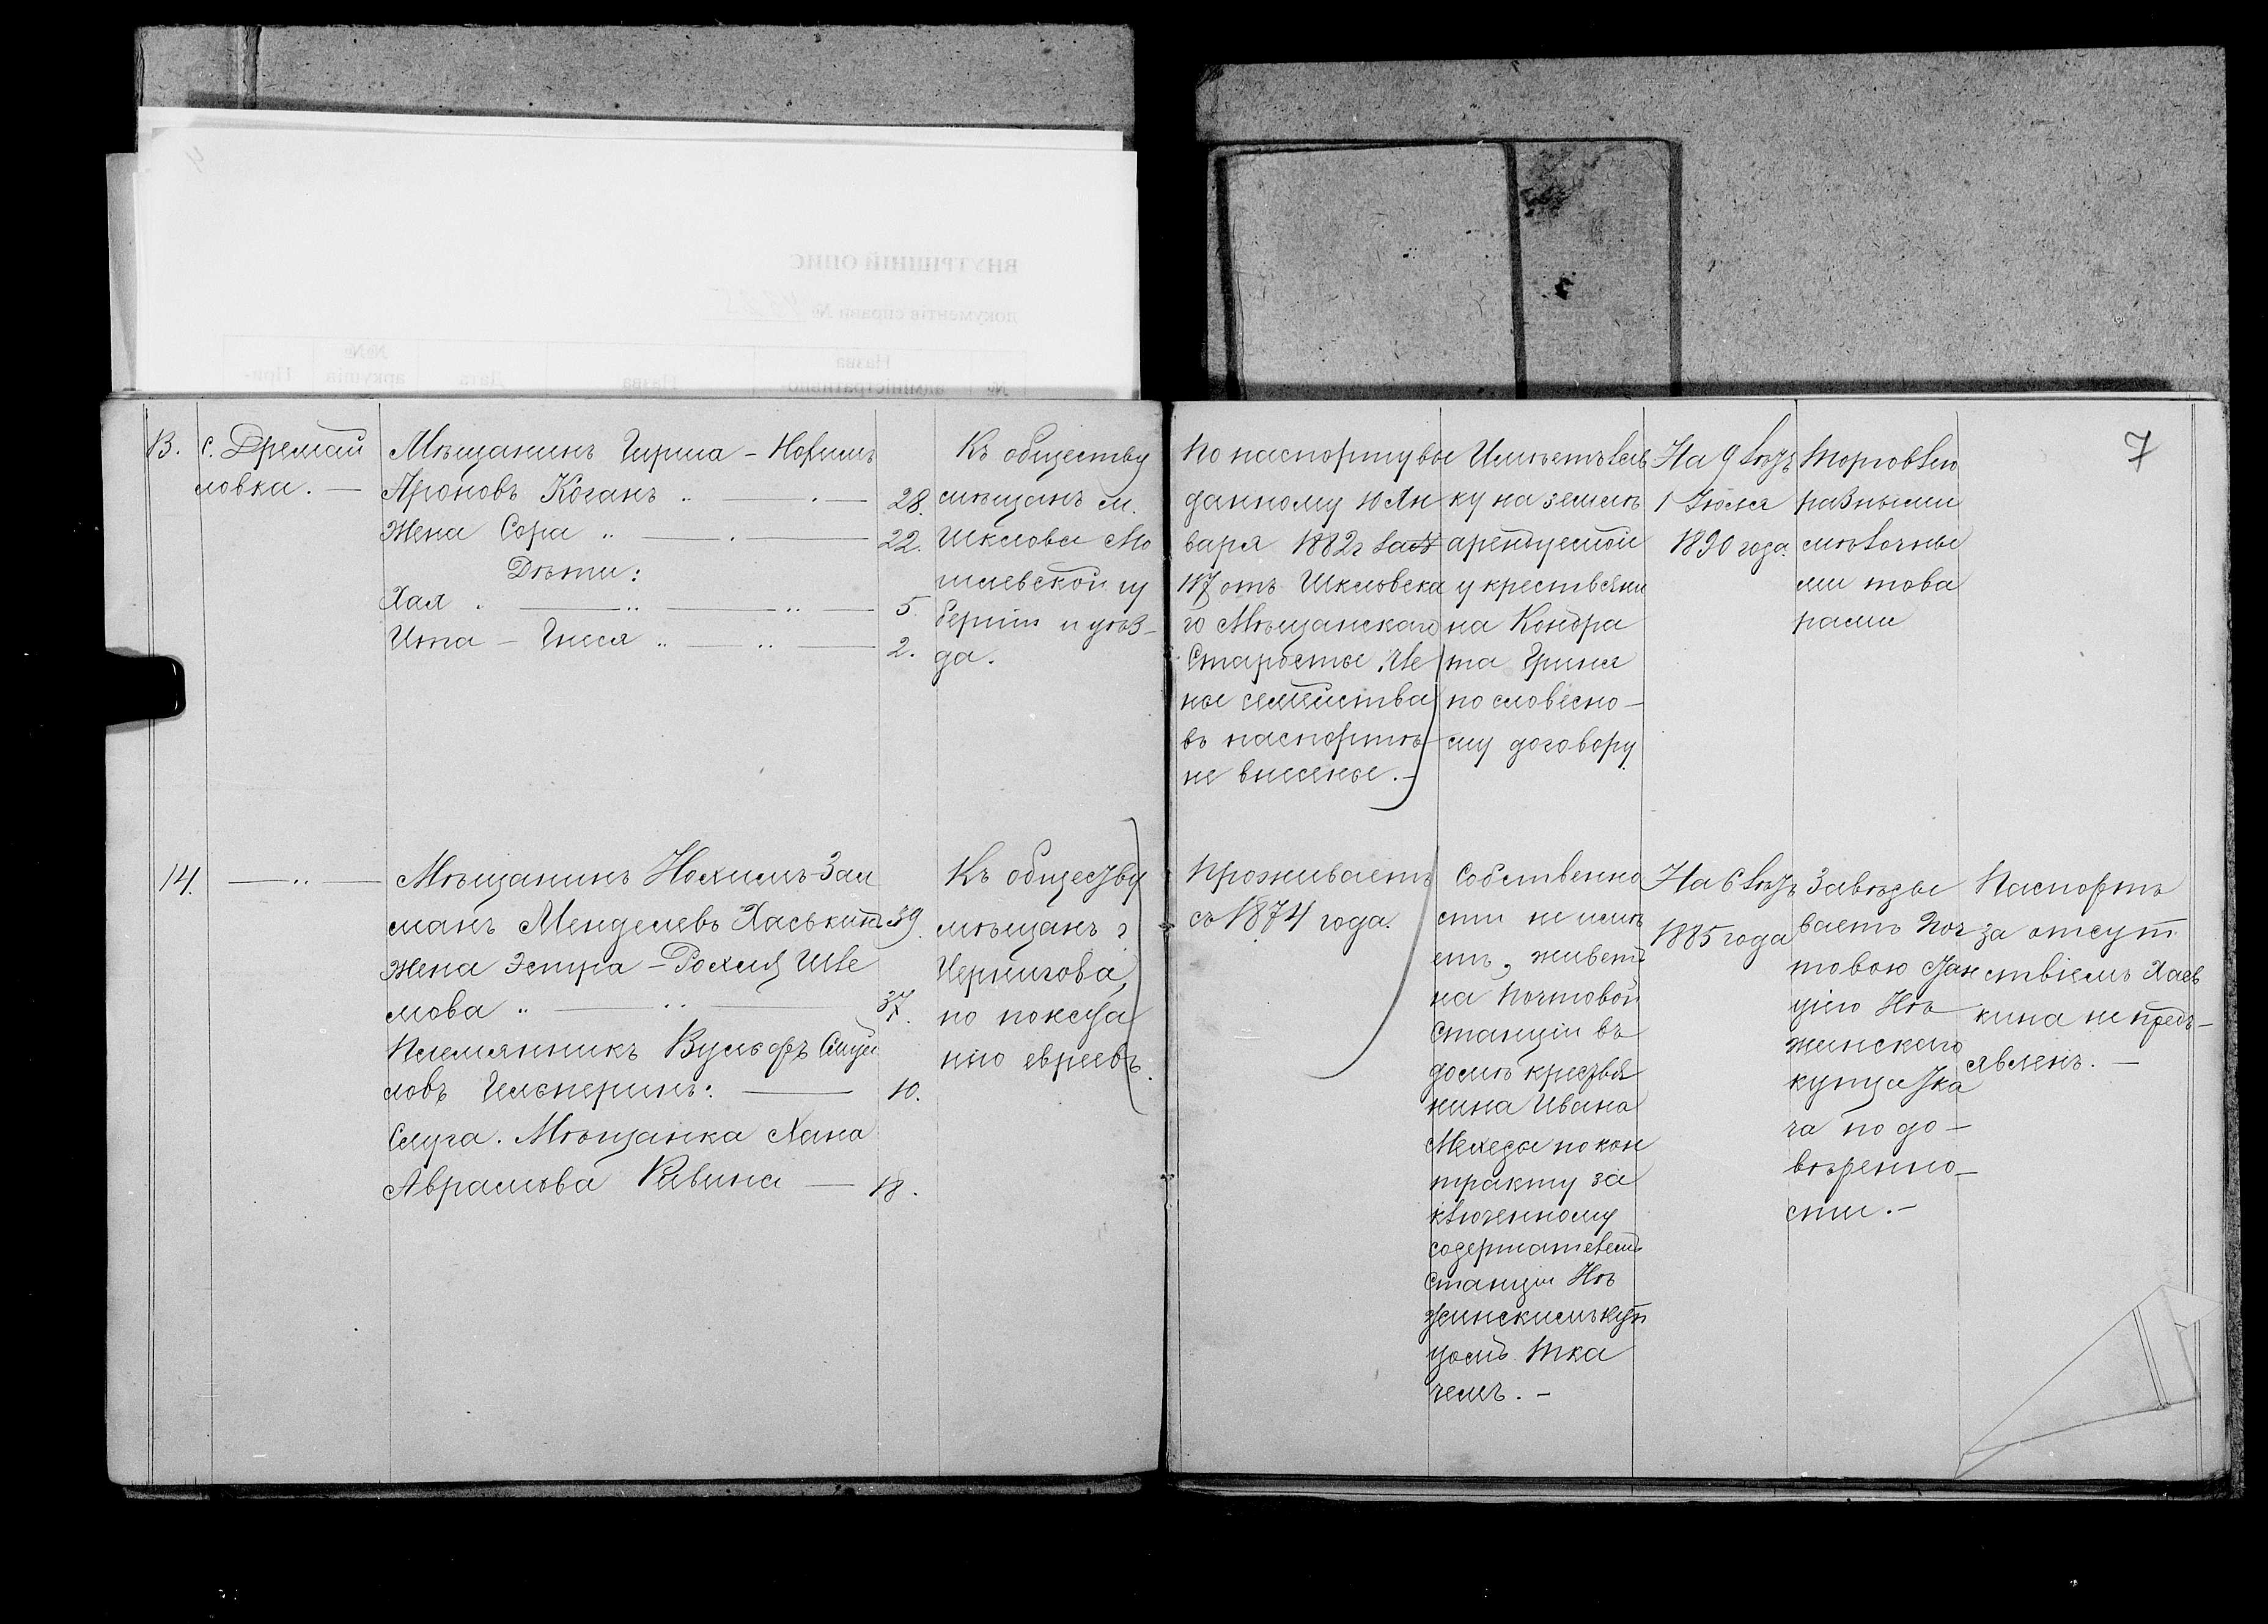 7
13.
с. Дремай
ловка. —
Мѣщанинъ Гирша - Нохимъ
Ароновъ Коганъ " — . — 28.
Жена Сора " — . — 22.
Дѣти:
Хая . — " — " — 5.
Ита - Гнеся " — " — 2.
Къ обществу
мѣщанъ м.
Шклова Мо
гилевской гу
берніи и уѣз-
да.
По паспорту вы
данному 10 Ян
варя 1882г за №
117 отъ Шкловска
го Мѣщанскаго
Старосты. Чле
ны семейства
въ паспортѣ
не внесены. -
Имѣетъ лав
ку на землѣ
арендуемой
у крестьяни
на Кондра
та Гриня
по словесно-
му договору.
На 9 лѣтъ
1 Іюля
1890 года.
Торговлею
разными
мѣлочны
ми това
рами
14.
— " —
Мѣщанинъ Нохимъ-Зал
манъ Менделевъ Хаськинъ 39.
Жена Эстра - Рохля Шле
мова " — " — 37.
Племянникъ Вульфъ Шмуй
ловъ Гальперинъ: — 10.
Слуга. Мѣщанка Хана
Аврамова Ривина — 18.
Къ обществу
мѣщанъ г.
Чернигова,
по показа
нію евреевъ.
Проживаетъ
съ 1874 года.
Собственно
сти не имѣ
етъ, живетъ
на Почтовой
Станціи въ
домѣ крестья
нина Ивана
Мехеда по кон
тракту за
ключенному
содержателемъ
Станціи Нѣ
жинскимъ куп
цомъ Тка
чемъ. -
На 6 лѣтъ
1885 года
Завѣды
ваетъ Поч
товою Стан
ціею Нѣ
жинскаго
купца Тка
ча по до-
вѣренно-
сти. -
Паспортъ
за отсут
ствіемъ Хась
кина не предъ-
явленъ. —